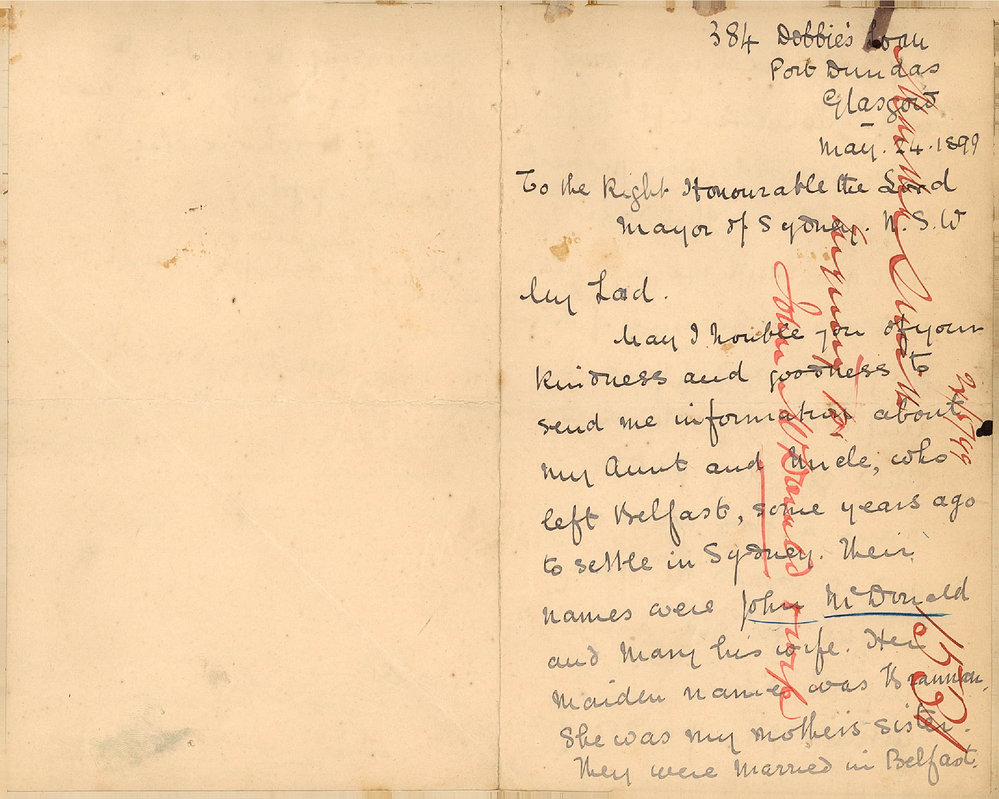 384 Dobbie's Loan
Port Dundas
Glasgow
May. 24. 1899
To the Right Honourable the Lord
Mayor of Sydney. N. S. W
My Lord.
May I trouble you of your
kindness and goodness to
send me information about
my Aunt and Uncle, who
left Belfast, some years ago
to settle in Sydney. Their
names were John McDonald
and Mary his wife. Her
maiden name was Brannan.
She was my mother's sister.
They were married in Belfast.
Inquiry re
John McDonald & wife